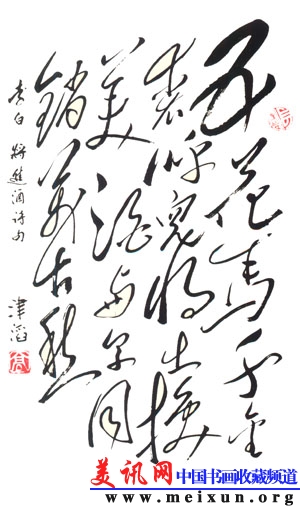 五花馬千金
裘呼兒將出換
美酒与尔同
銷萬古愁
李白 將進酒诗句
津滔
高
美讯网 中国书画收藏频道
www.meixun.org